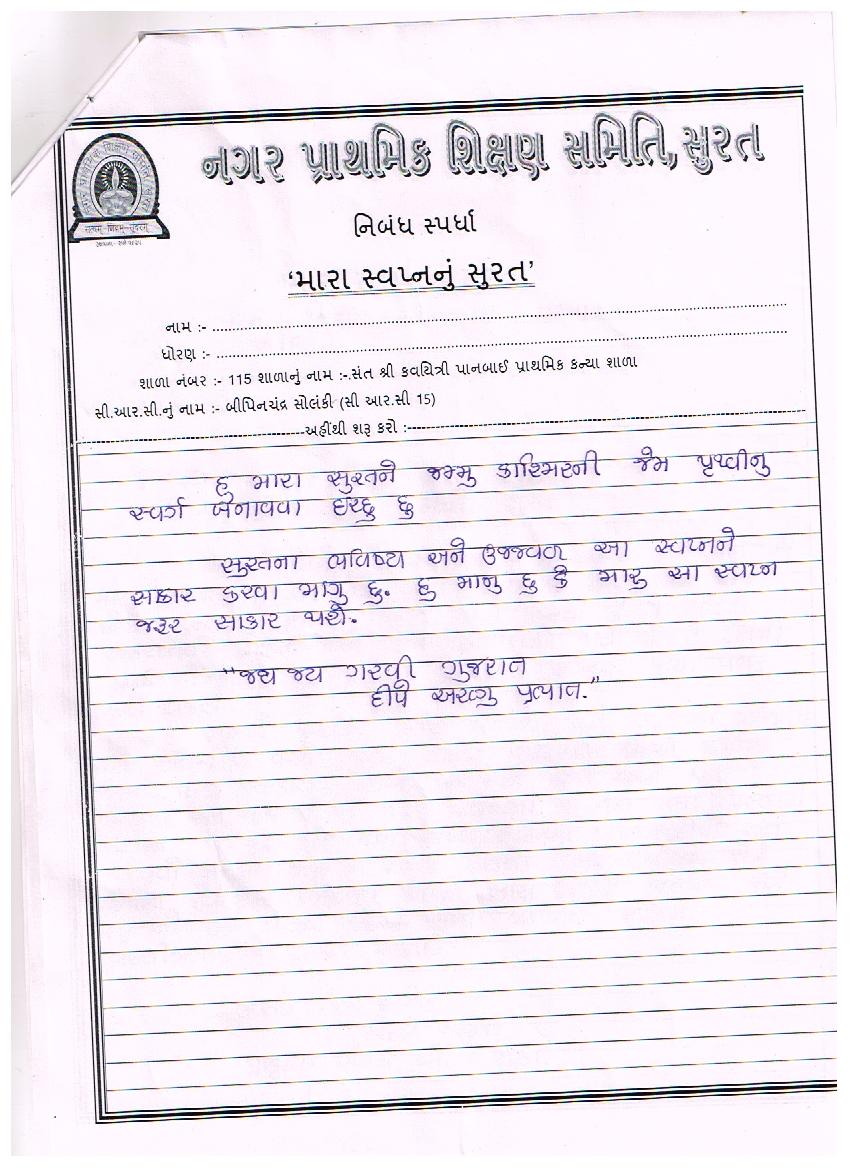 નગર પ્રાથમિક શિક્ષણ સમિતિ, સુરત
નિબંધ સ્પર્ધા
‘મારા સ્વપ્નનું સુરત’
નામ :- ........................................
ધોરણ :- ........................................
શાળા નંબર :- 115 શાળાનું નામ :-.સંત શ્રી કવયિત્રી પાનબાઈ પ્રાથમિક કન્યા શાળા
સી.આર.સી.નું નામ :- બીપિનચંદ્ર સોલંકી (સી આર.સી 15)
----------અહીંથી શરૂ કરો :----------
હુ મારા સુરતને જમ્મુ કાશ્મિરની જેમ પૃથ્વીનુ
સ્વર્ગ બનાવવા ઇચ્છુ છુ
સુરતના ભવિષ્ય અને ઉજ્જવળ આ સ્વપ્નને
સાકાર કરવા માગુ છુ. હુ માનુ છુ કે મારુ આ સ્વપ્ન
જરૂર સાકાર થશે.
"જય જય ગરવી ગુજરાત
દીપે અરુણુ પ્રભાત."